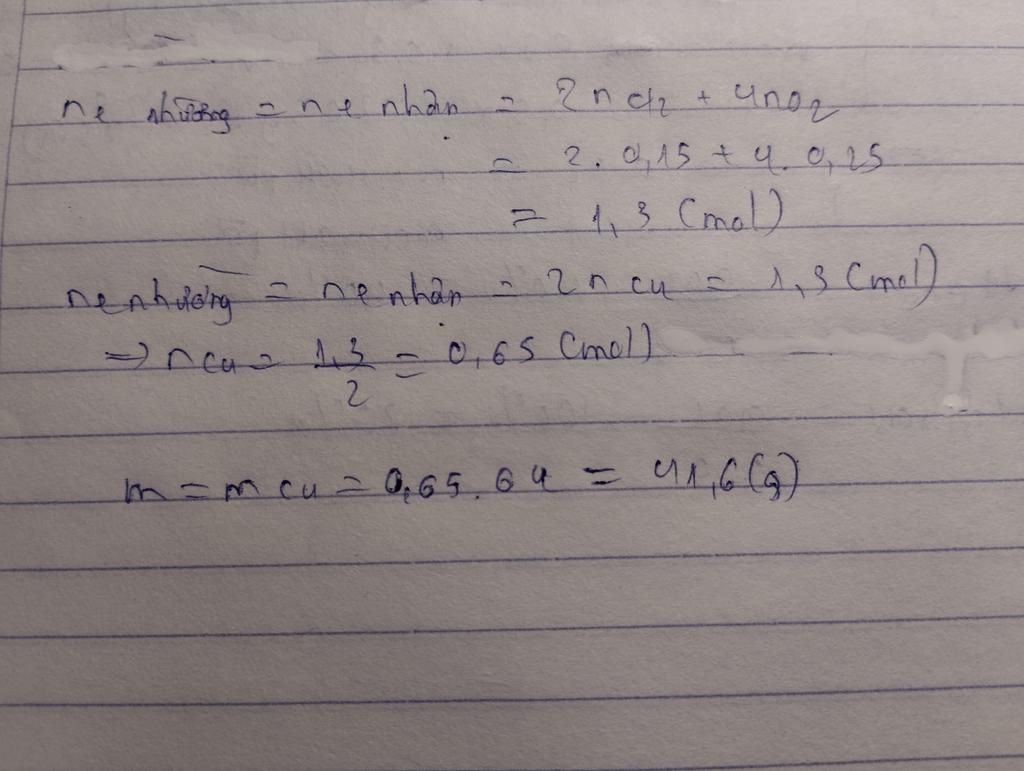 ne nhường = ne nhận = 2nCl2 + 4nO2
= 2. 0,15 + 4. 0,25
= 1,3 (mol)
ne nhường = ne nhận = 2nCu = 1,3 (mol)
=> nCu = 1,3/2 = 0,65 (mol)
m = mCu = 0,65. 64 = 41,6 (g)